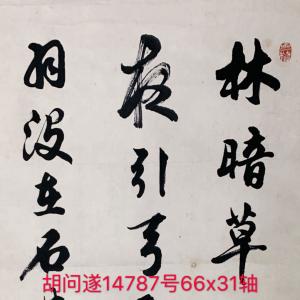 林暗草
夜引弓
羽没在石
胡问遂14787号66x31轴